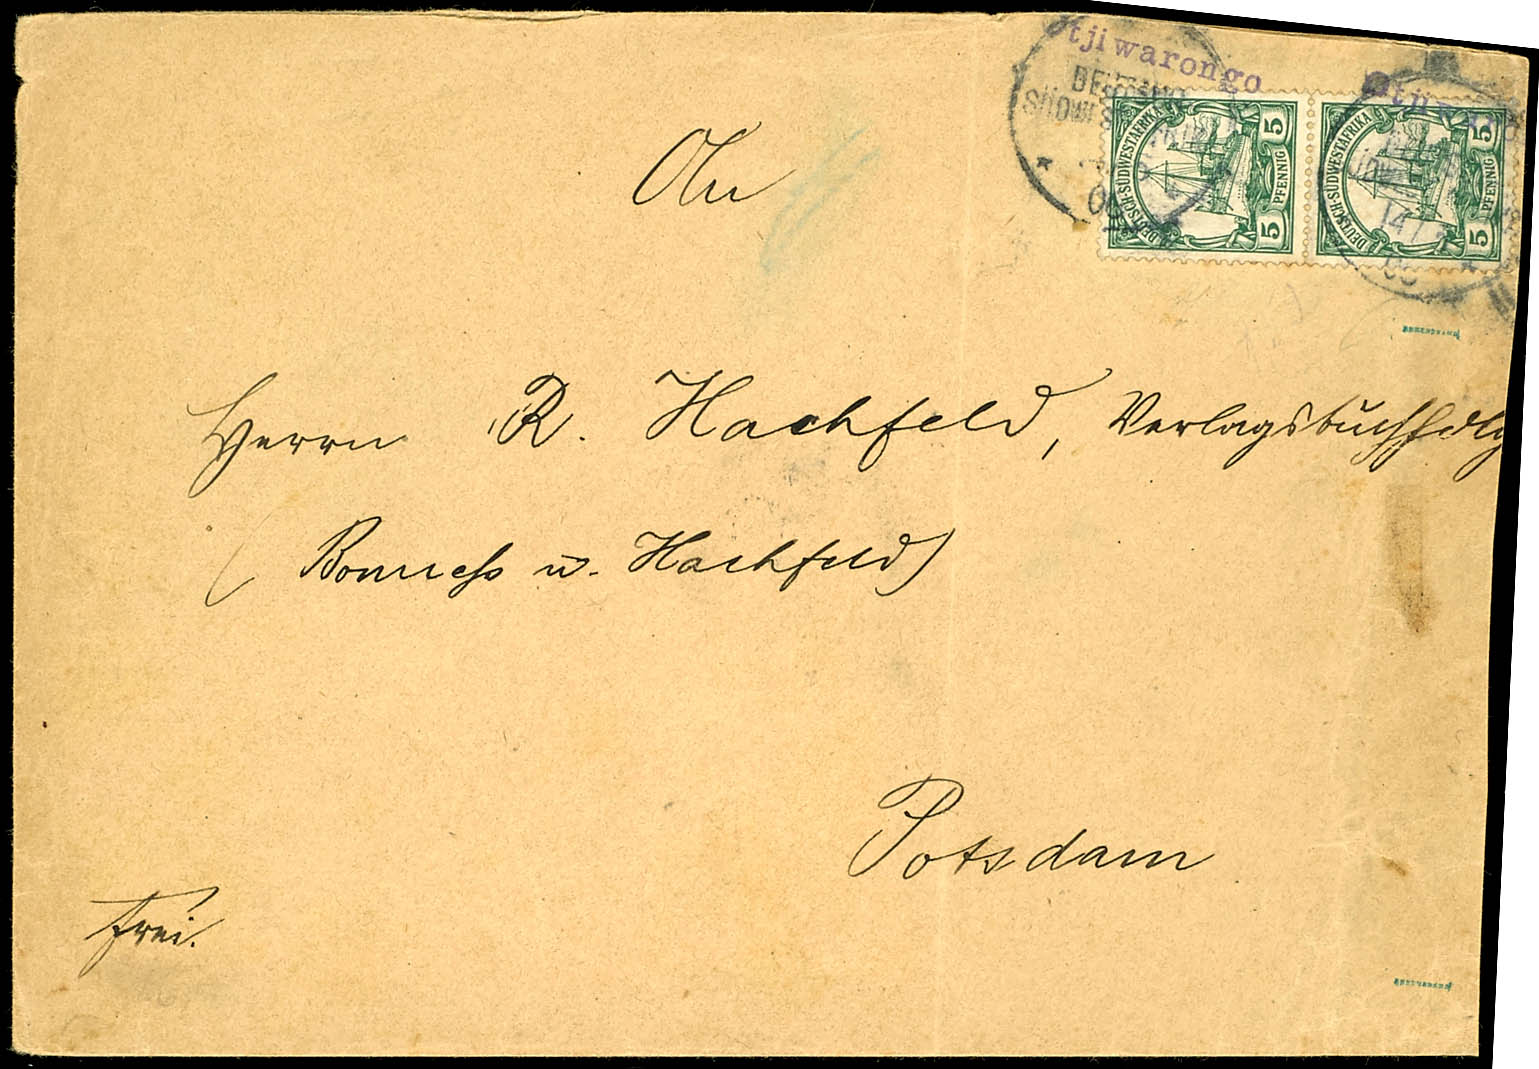 Otjiwarongo
DEUTSCH-SÜDWESTAFRIKA
5 PFENNIG 5
DEUTSCH-SÜDWESTAFRIKA
5 PFENNIG 5
An
Herrn R. Hachfeld, Verlagsbuchhdlg
(Bonness u. Hachfeld)
Potsdam
Frei.